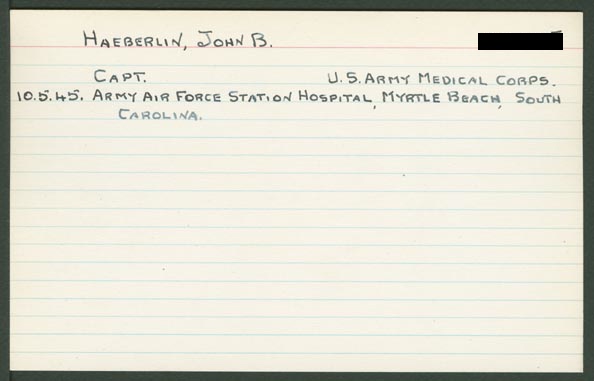 HAEBERLIN, JOHN B.
CAPT. U.S. ARMY MEDICAL CORPS.
10.5.45. ARMY AIR FORCE STATION HOSPITAL, MYRTLE BEACH, SOUTH
CAROLINA.